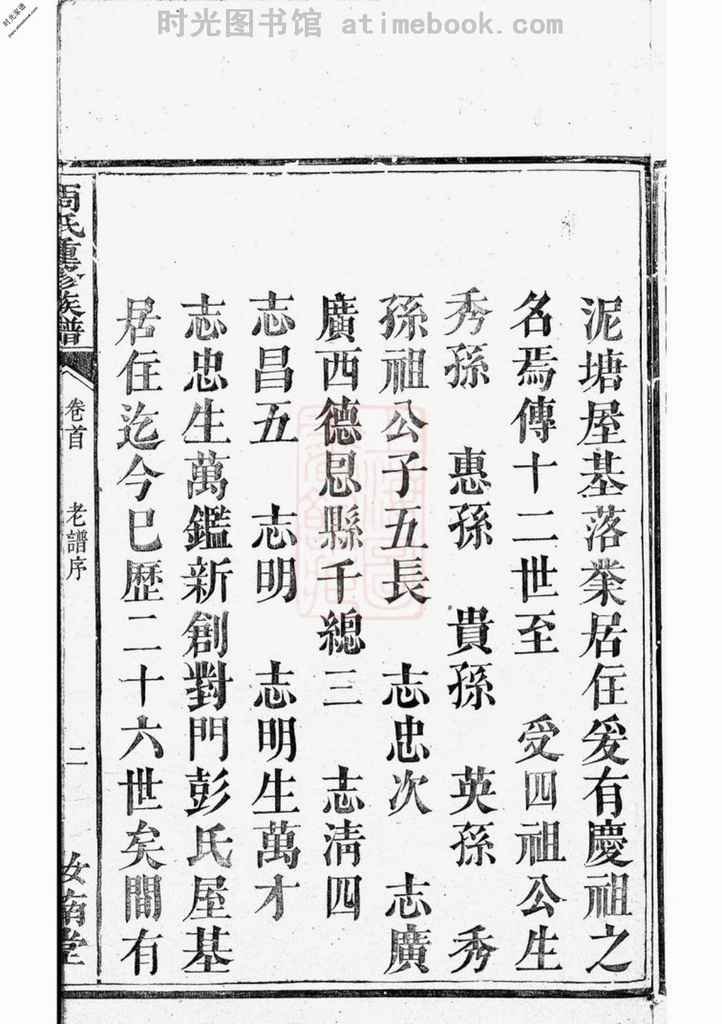 时光图书馆 atimebook.com
泥塘屋基落業居住爰有慶祖之
名焉傳十二世至 受四祖公生
秀孫 惠孫 貴孫 英孫 秀
孫祖公子五長 志忠次 志廣
廣西德恩縣千總三 志清四
志昌五 志明 志明生萬才
志忠生萬鑑新創對門彭氏屋基
居住迄今已歷二十六世矣間有
周氏重修族譜 卷首 老譜序 二 汝南堂